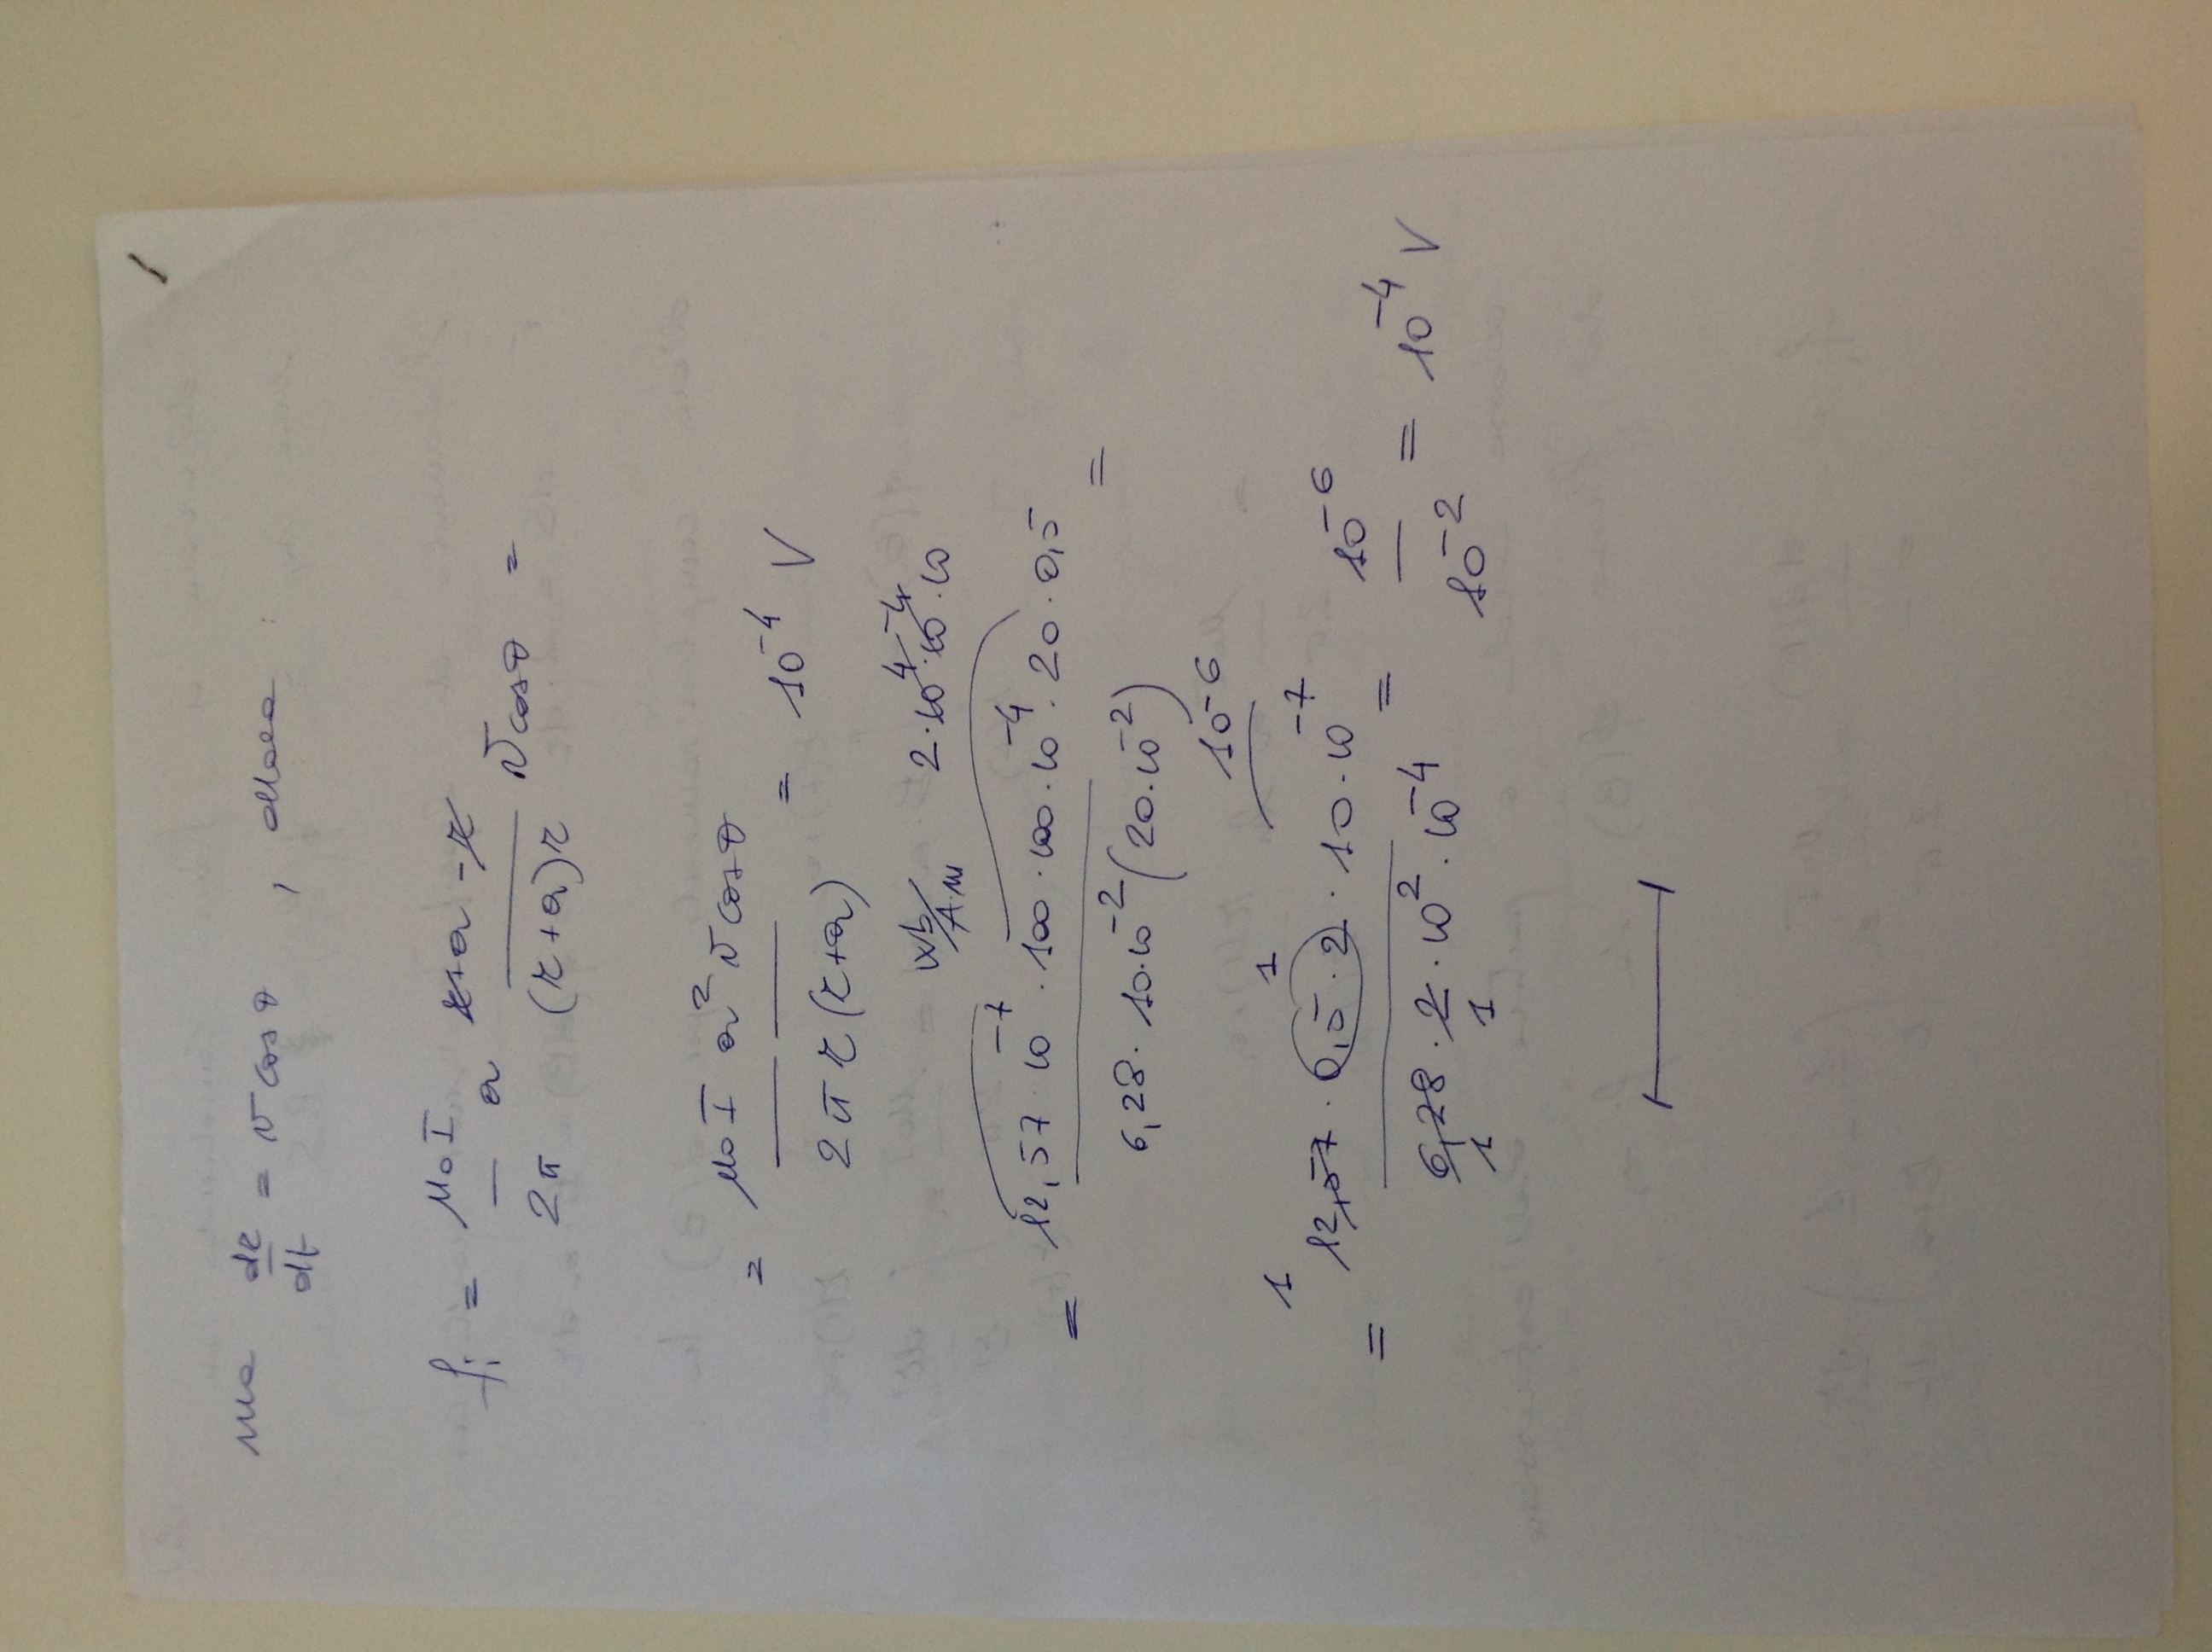 1
ma dr/dt = v cos θ , allora :
fi = μ₀I/2π a (r+a-r)/((r+a)r) v cos θ =
= μ₀I a² v cos θ / 2π r(r+a) = 10⁻⁴ V
Wb/A·m 2·10⁴·10⁻⁴·10
= 12,57·10⁻⁷·100·100·10⁻⁴·20·0,5 / 6,28·10·10⁻²(20·10⁻²) =
10⁻⁶
1 1
= 12,57·0,5·2·10·10⁻⁷ / 6,28·2·10²·10⁻⁴ = 10⁻⁶/10⁻² = 10⁻⁴ V
1 1